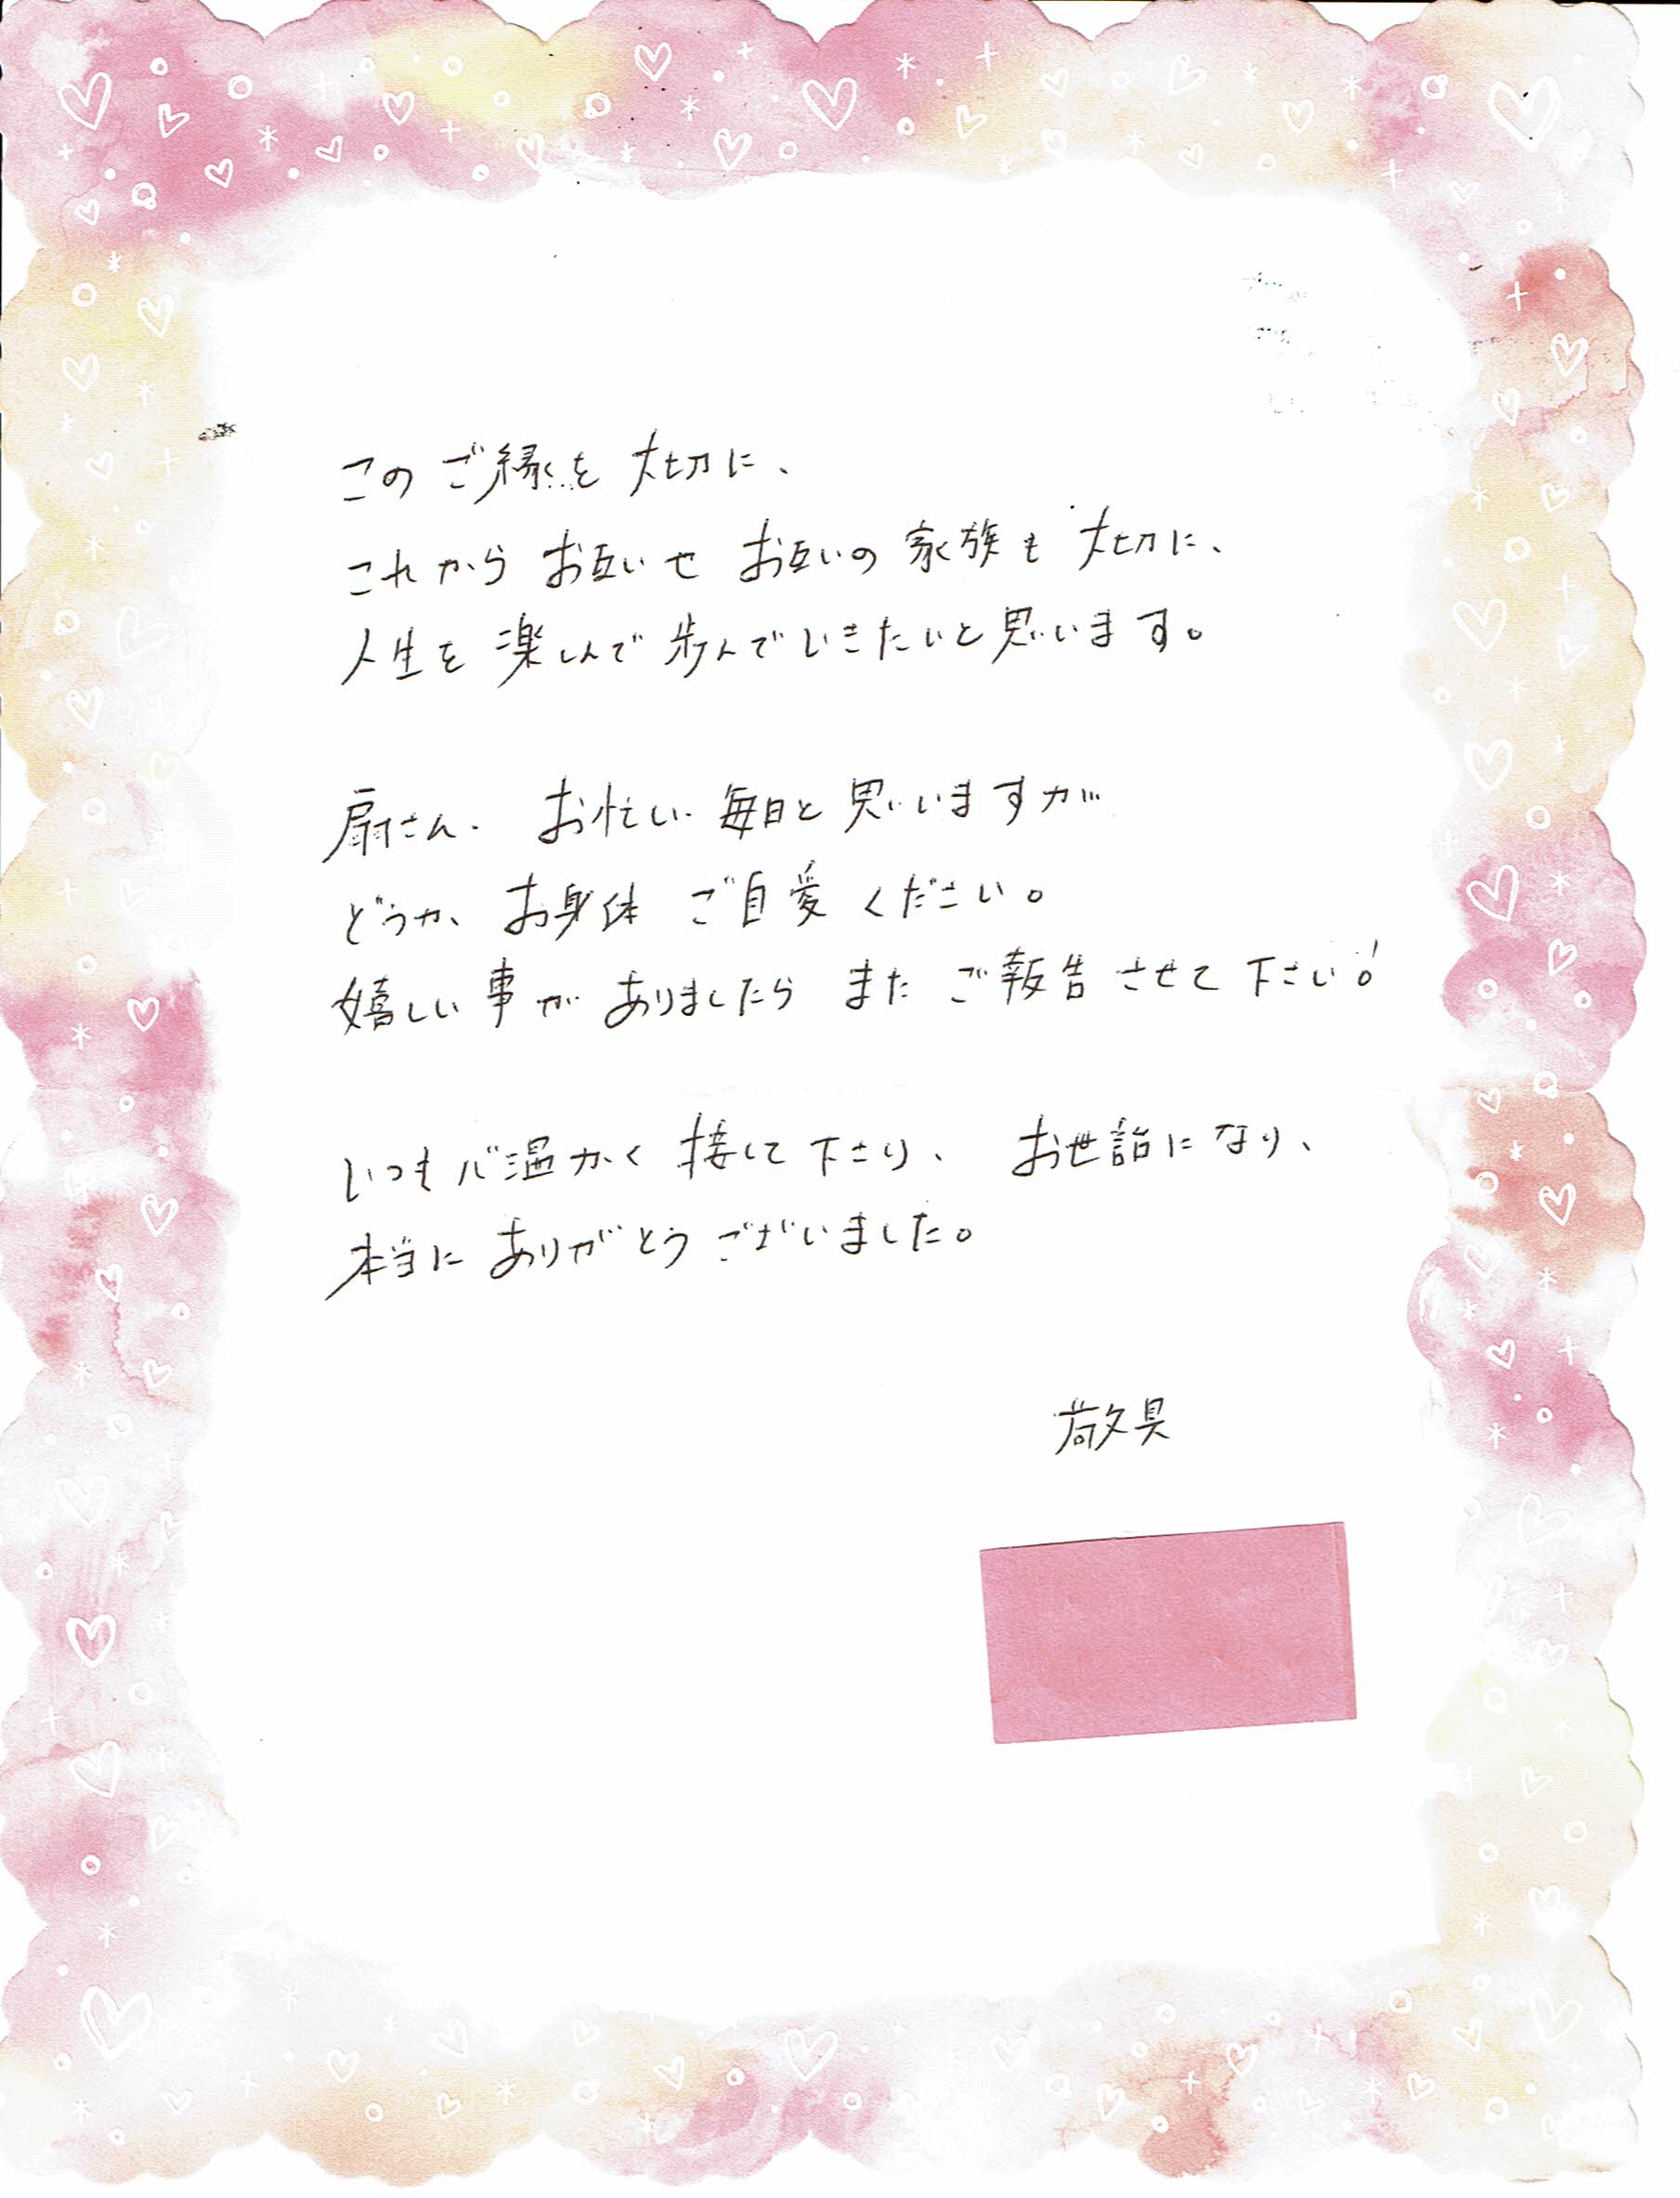 このご縁を大切に、
これからお互いやお互いの家族も大切に、
人生を楽しんで歩んでいきたいと思います。
扇さん、お忙しい毎日と思いますが
どうか、お身体ご自愛ください。
嬉しい事がありましたらまたご報告させて下さい!
いつも心温かく接して下さり、お世話になり、
本当にありがとうございました。
敬具